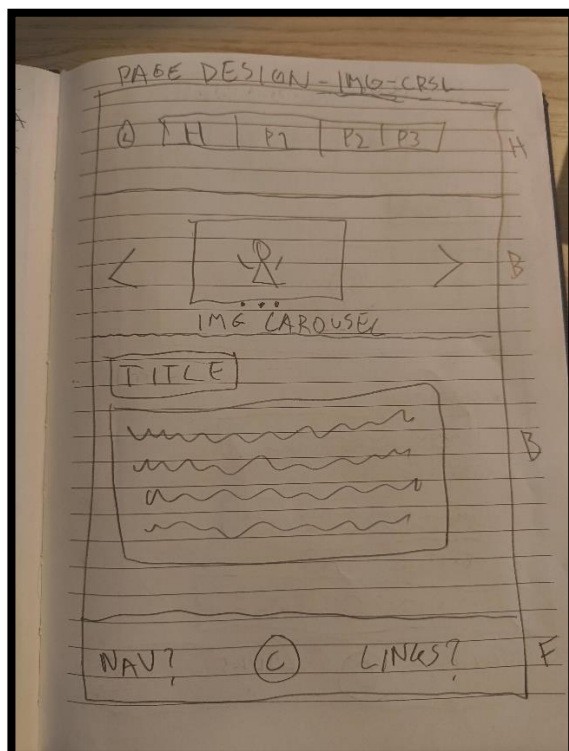 PAGE DESIGN - IMG-CRSL
L H P1 P2 P3 H
< > B
IMG CAROUSEL
TITLE
B
NAV? C LINKS? F